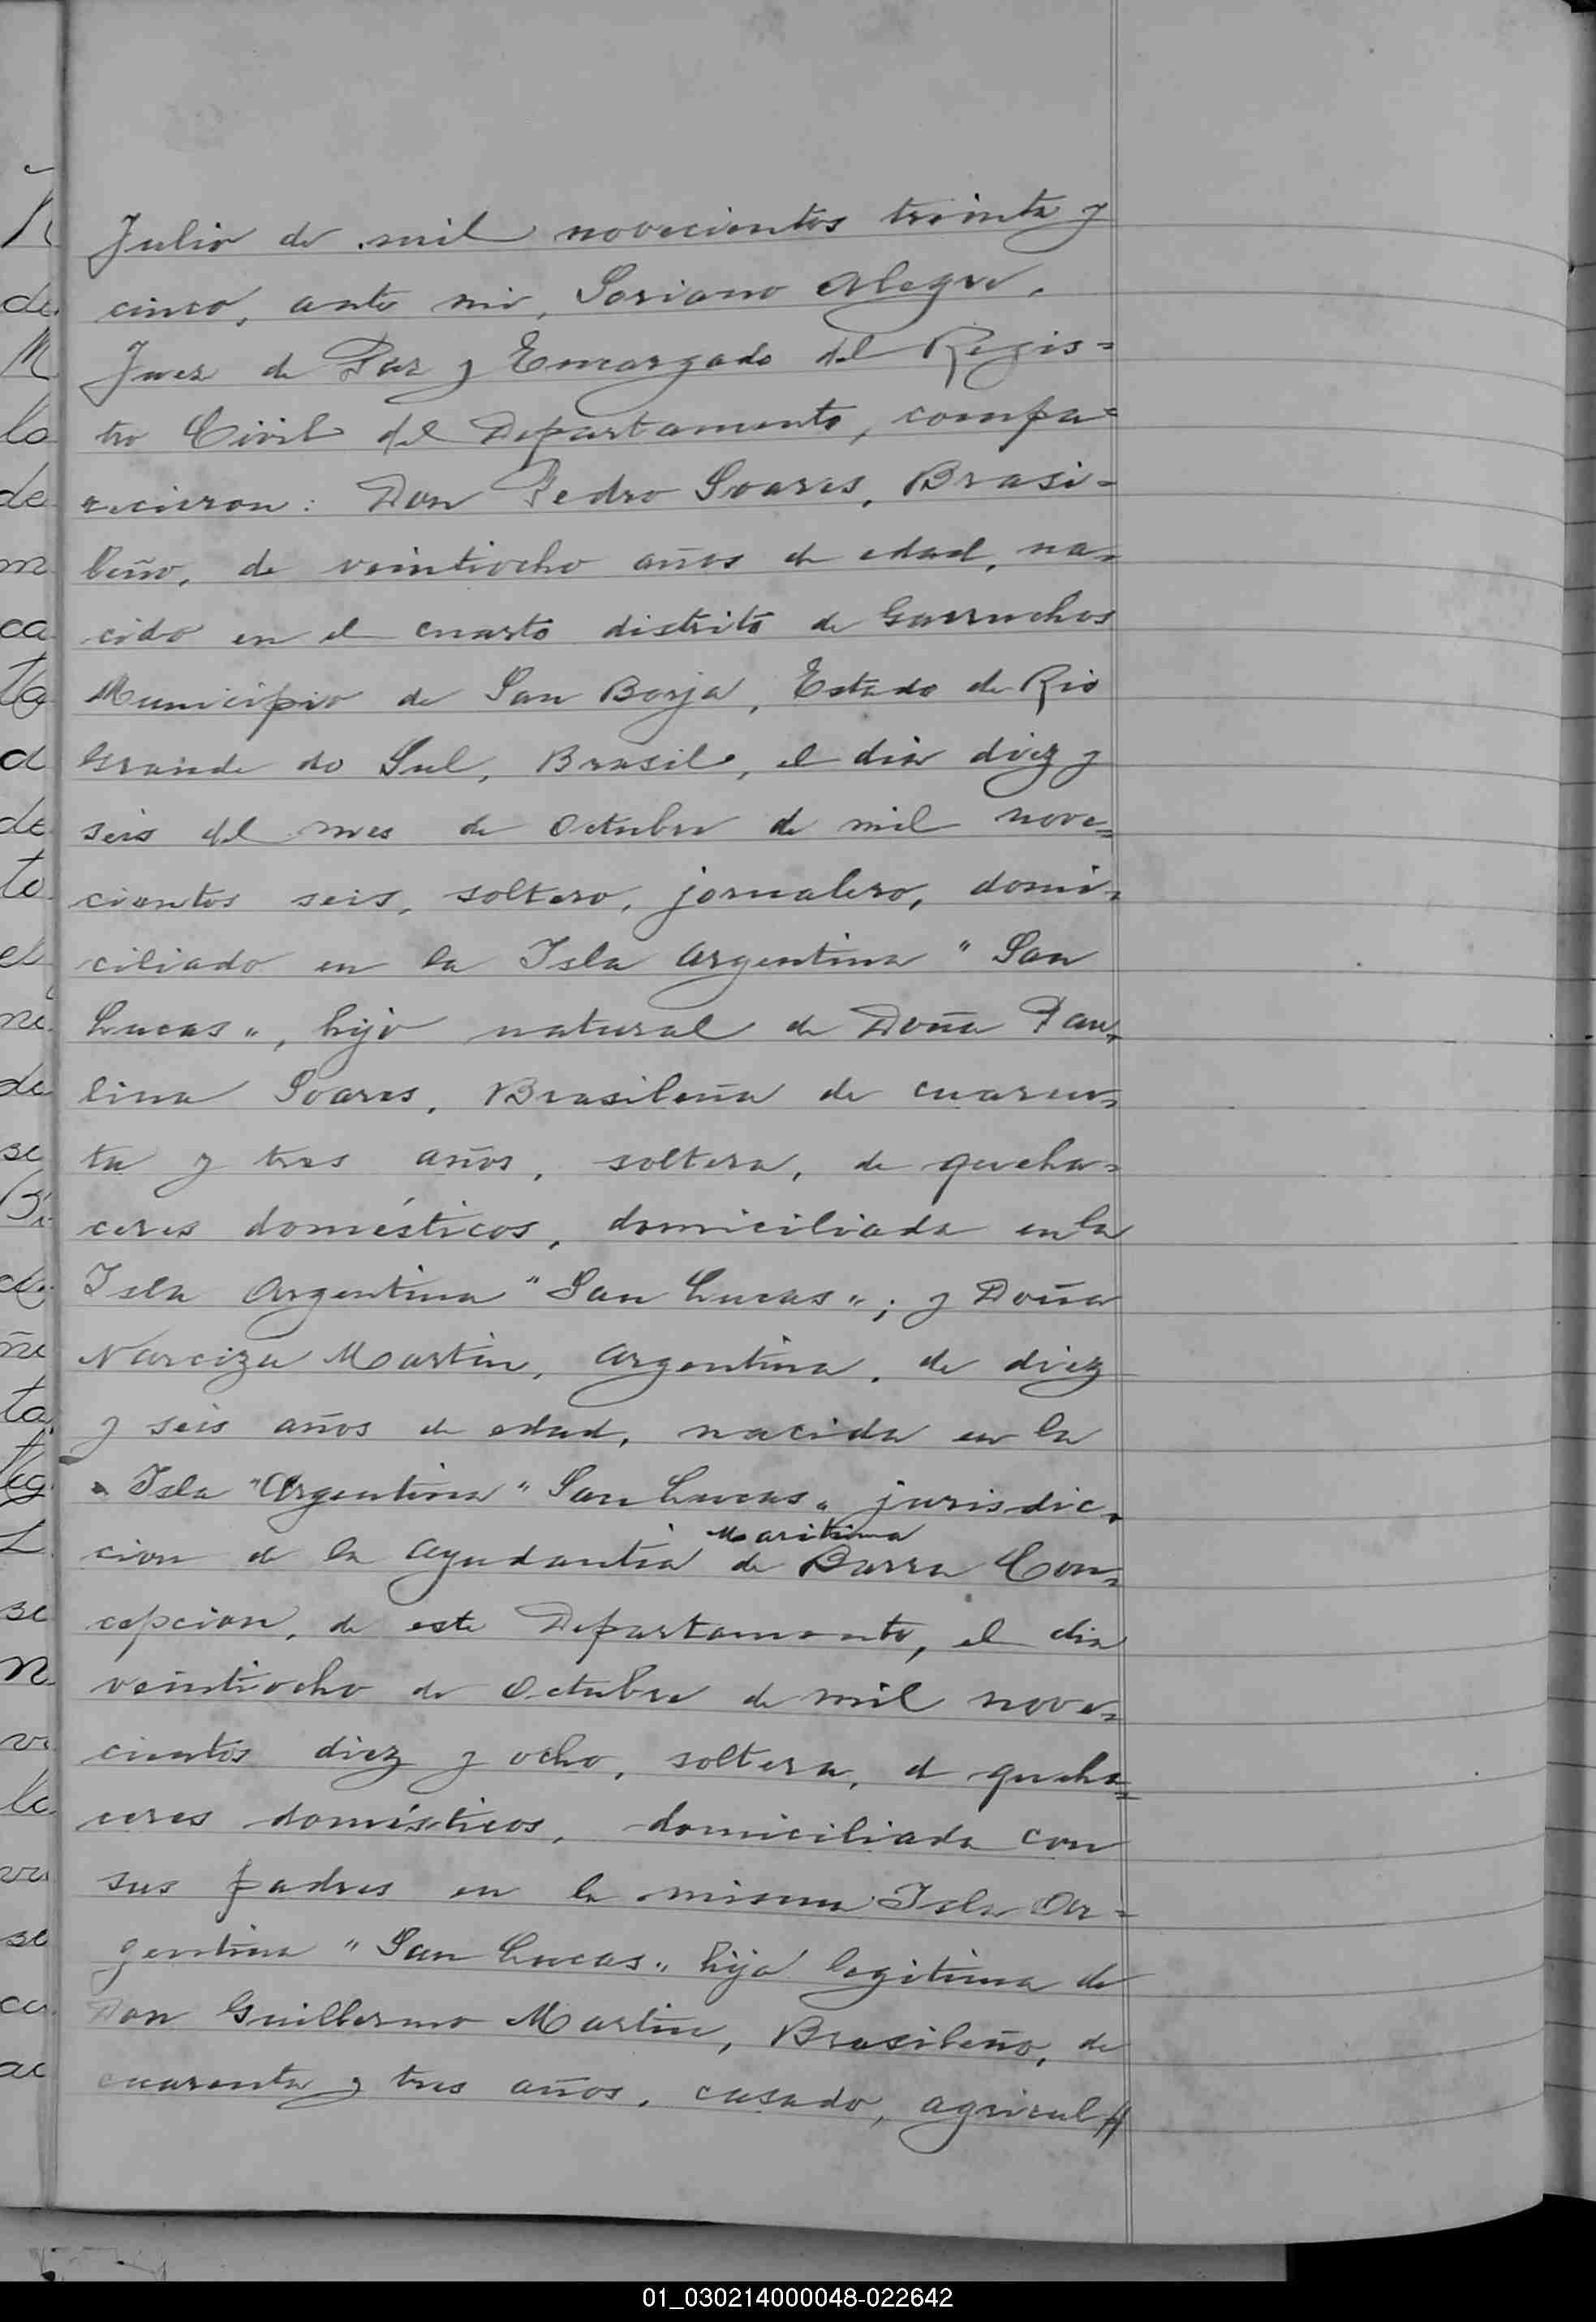 Julio de mil novecientos treinta y
cinco, ante mi, Soriano Alegre,
Juez de Paz y Encargado del Regis=
tro Civil del Departamento, compa=
recieron: Don Pedro Soares, Brasi=
leño, de veintiocho años de edad, na=
cido en el cuarto distrito de Garruchos
Municipio de San Borja, Estado de Rio
Grande do Sul, Brasil, el dia diez y
seis del mes de Octubre de mil nove=
cientos seis, soltero, jornalero, domi=
ciliado en la Isla Argentina "San
Lucas", hijo natural de Doña Pau=
lina Soares, Brasileña de cuaren=
ta y tres años, soltera, de queha=
ceres domésticos, domiciliada en la
Isla Argentina "San Lucas"; y Doña
Narciza Martin, Argentina, de diez
y seis años de edad, nacida en la
Isla "Argentina "San Lucas" jurisdic=
Maritima
cion de la Ayudantia de Barra Con=
cepcion, de este Departamento, el dia
veintiocho de Octubre de mil nove=
cientos diez y ocho, soltera, de queha=
ceres domésticos, domiciliada con
sus padres en la misma Isla Ar=
gentina "San Lucas" hija legitima de
Don Guillermo Martin, Brasileño, de
cuarenta y tres años, casado, agricul//
01_030214000048-022642